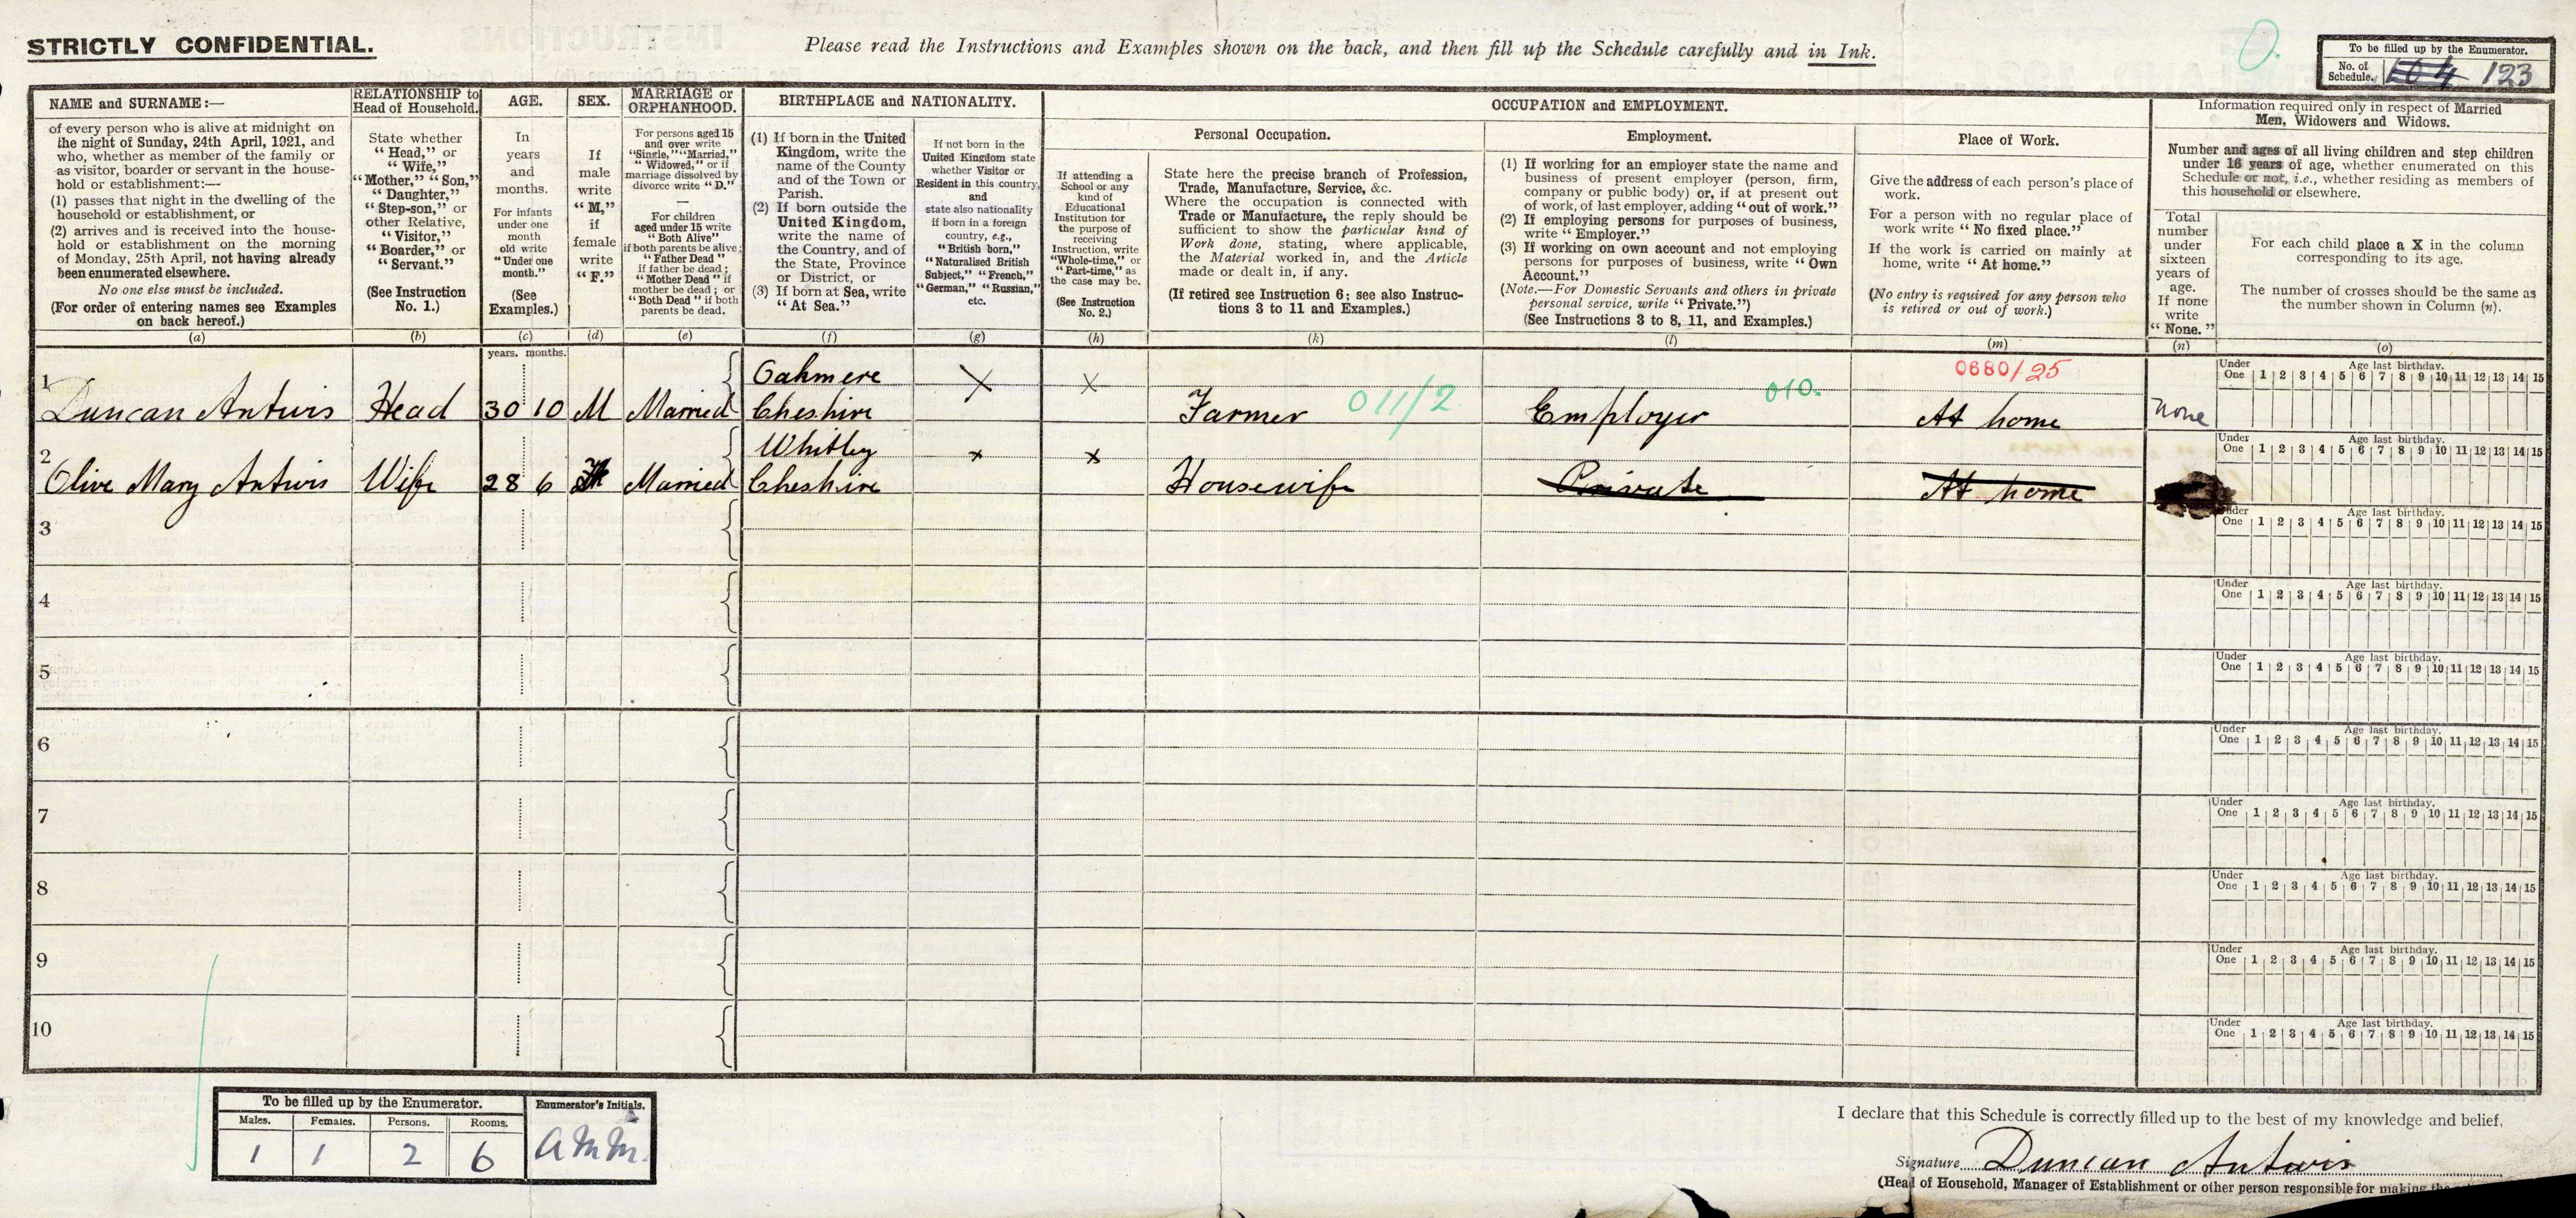 STRICTLY CONFIDENTIAL.
Please read the Instructions and Examples shown on the back, and then fill up the Schedule carefully and in Ink.
0.
To be filled up by the Enumerator.
No. of Schedule. 104 123
NAME and SURNAME:—
of every person who is alive at midnight on
the night of Sunday, 24th April, 1921, and
who, whether as member of the family or
as visitor, boarder or servant in the house-
hold or establishment:—
(1) passes that night in the dwelling of the
household or establishment, or
(2) arrives and is received into the house-
hold or establishment on the morning
of Monday, 25th April, not having already
been enumerated elsewhere.
No one else must be included.
(For order of entering names see Examples
on back hereof.)
(a)
RELATIONSHIP to
Head of Household.
State whether
"Head," or
"Wife,"
"Mother," "Son,"
"Daughter,"
"Step-son," or
other Relative,
"Visitor,"
"Boarder," or
"Servant."
(See Instruction
No. 1.)
(b)
AGE.
In
years
and
months.
For infants
under one
month
old write
"Under one
month."
(See
Examples.)
(c)
SEX.
If
male
write
"M,"
if
female
write
"F."
(d)
MARRIAGE or
ORPHANHOOD.
For persons aged 15
and over write
"Single," "Married,"
"Widowed," or if
marriage dissolved by
divorce write "D."
—
For children
aged under 15 write
"Both Alive"
if both parents be alive;
"Father Dead"
if father be dead;
"Mother Dead" if
mother be dead; or
"Both Dead" if both
parents be dead.
(e)
BIRTHPLACE and NATIONALITY.
(1) If born in the United
Kingdom, write the
name of the County
and of the Town or
Parish.
(2) If born outside the
United Kingdom,
write the name of
the Country, and of
the State, Province
or District, or
(3) If born at Sea, write
"At Sea."
(f)
If not born in the
United Kingdom state
whether Visitor or
Resident in this country,
and
state also nationality
if born in a foreign
country, e.g.,
"British born,"
"Naturalised British
Subject," "French,"
"German," "Russian,"
etc.
(g)
OCCUPATION and EMPLOYMENT.
If attending a
School or any
kind of
Educational
Institution for
the purpose of
receiving
Instruction, write
"Whole-time," or
"Part-time," as
the case may be.
(See Instruction
No. 2.)
(h)
Personal Occupation.
State here the precise branch of Profession,
Trade, Manufacture, Service, &c.
Where the occupation is connected with
Trade or Manufacture, the reply should be
sufficient to show the particular kind of
Work done, stating, where applicable,
the Material worked in, and the Article
made or dealt in, if any.
(If retired see Instruction 6; see also Instruc-
tions 3 to 11 and Examples.)
(k)
Employment.
(1) If working for an employer state the name and
business of present employer (person, firm,
company or public body) or, if at present out
of work, of last employer, adding "out of work."
(2) If employing persons for purposes of business,
write "Employer."
(3) If working on own account and not employing
persons for purposes of business, write "Own
Account."
(Note.—For Domestic Servants and others in private
personal service, write "Private.")
(See Instructions 3 to 8, 11, and Examples.)
(l)
Place of Work.
Give the address of each person's place of
work.
For a person with no regular place of
work write "No fixed place."
If the work is carried on mainly at
home, write "At home."
(No entry is required for any person who
is retired or out of work.)
(m)
Information required only in respect of Married
Men, Widowers and Widows.
Number and ages of all living children and step children
under 16 years of age, whether enumerated on this
Schedule or not, i.e., whether residing as members of
this household or elsewhere.
Total
number
under
sixteen
years of
age.
If none
write
"None."
(n)
For each child place a X in the column
corresponding to its age.
The number of crosses should be the same as
the number shown in Column (n).
(o)
years. months.
0680/25
Under One Age last birthday. 1 2 3 4 5 6 7 8 9 10 11 12 13 14 15
Oahmere X X
1 Duncan Antwis Head 30 10 M Married Cheshire Farmer 011/2 Employer 010. At home None
Under One Age last birthday. 1 2 3 4 5 6 7 8 9 10 11 12 13 14 15
Whitley x x
2 Olive Mary Antwis Wife 28 6 F Married Cheshire Housewife Private At home
3 Under One Age last birthday. 1 2 3 4 5 6 7 8 9 10 11 12 13 14 15
4 Under One Age last birthday. 1 2 3 4 5 6 7 8 9 10 11 12 13 14 15
5 Under One Age last birthday. 1 2 3 4 5 6 7 8 9 10 11 12 13 14 15
6 Under One Age last birthday. 1 2 3 4 5 6 7 8 9 10 11 12 13 14 15
7 Under One Age last birthday. 1 2 3 4 5 6 7 8 9 10 11 12 13 14 15
8 Under One Age last birthday. 1 2 3 4 5 6 7 8 9 10 11 12 13 14 15
9 Under One Age last birthday. 1 2 3 4 5 6 7 8 9 10 11 12 13 14 15
10 Under One Age last birthday. 1 2 3 4 5 6 7 8 9 10 11 12 13 14 15
To be filled up by the Enumerator.
Males. Females. Persons. Rooms.
1 1 2 6
Enumerator's Initials.
AMM.
I declare that this Schedule is correctly filled up to the best of my knowledge and belief.
Signature Duncan Antwis
(Head of Household, Manager of Establishment or other person responsible for making the